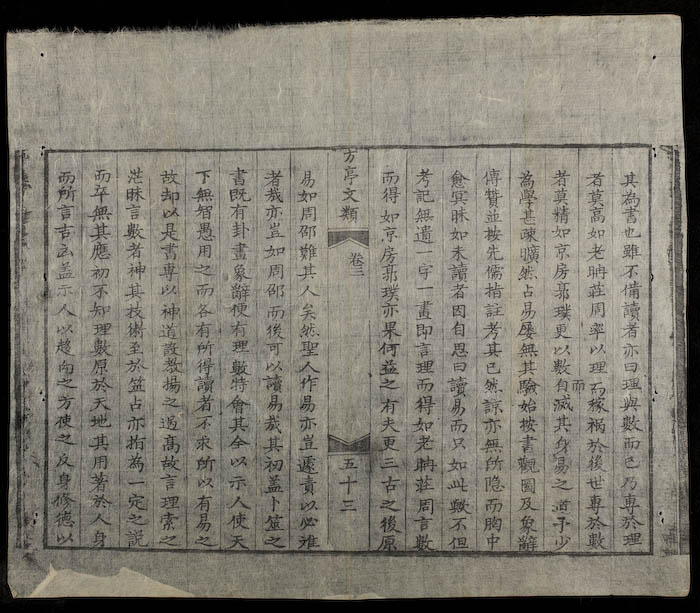 其為書也雖不備讀者亦曰理與數而已乃專於理
者莫高如老聃莊周率以理而稼禍於後世專於數
者莫精如京房郭璞更以數而自滅其身易之道予少
為學甚疎曠然占易屡無其驗始按書觀圖及象辭
傳贊並按先儒指註考其已然諒亦無所隐而胸中
愈冥昧如未讀者因自思曰讀易而只如此數不但
考記無遺一字一畫即言理而得如老聃莊周言數
而得如京房郭璞亦果何益之有夫更三古之後原
方亭文類
卷三
五十三
易如周邵難其人矣然聖人作易亦豈遽責以必难
者哉亦豈如周邵而後可以讀易哉其初盖卜筮之
書既有卦畫象辭便有理數特會其全以示人使天
下無智愚用之而各有所得讀者不求所以有易之
故却以是書專以神道設教揚之過高故言理索之
茫昧言數者神其技術至於筮占亦拘為一定之說
而卒無其應初不知理數原於天地其用著於人身
而所言吉凶盖示人以趋向之方使之反身修德以